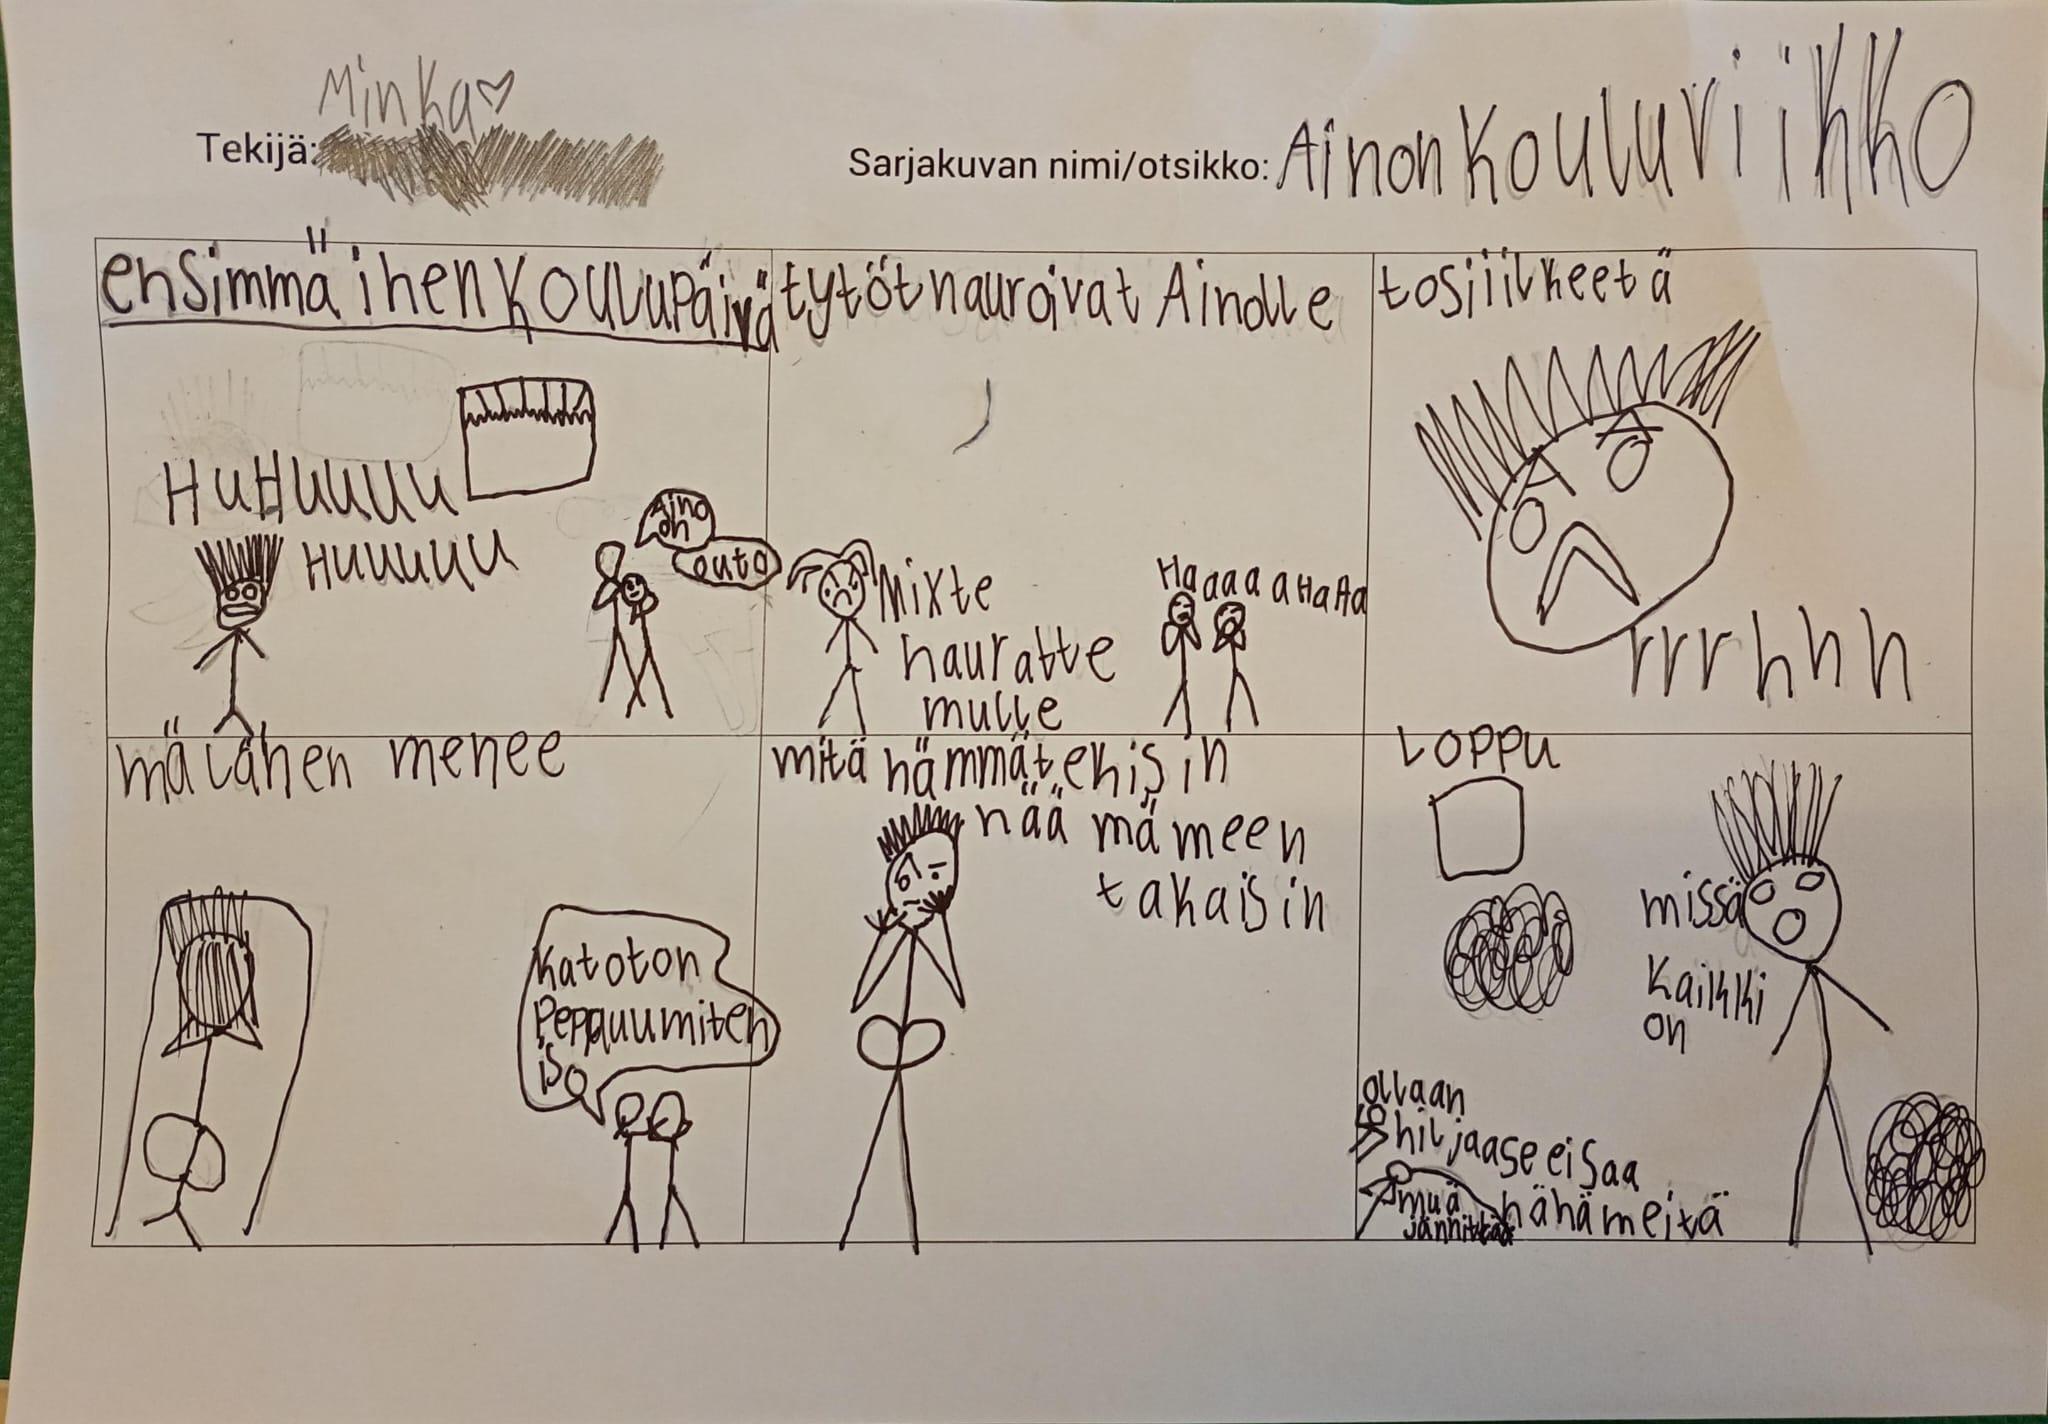 Minka♡
Tekijä:
Sarjakuvan nimi/otsikko: Ainon Kouluviikko
ensimmäinen koulupäivä
HuHuuuu
Huuuuu
Aino
on
outo
tytöt nauroivat Ainolle
Mixte
nauratte
mulle
HaaaaaHaHa
tosi ilkeetä
rrrhhh
mä lähen menee
Katoton
Peppuumiten
iso
mitä hämmä tekisin
nää mä meen
takaisin
Loppu
missä
kaikki
on
ollaan
hiljaase ei saa
nähä meitä
muä
jännittää